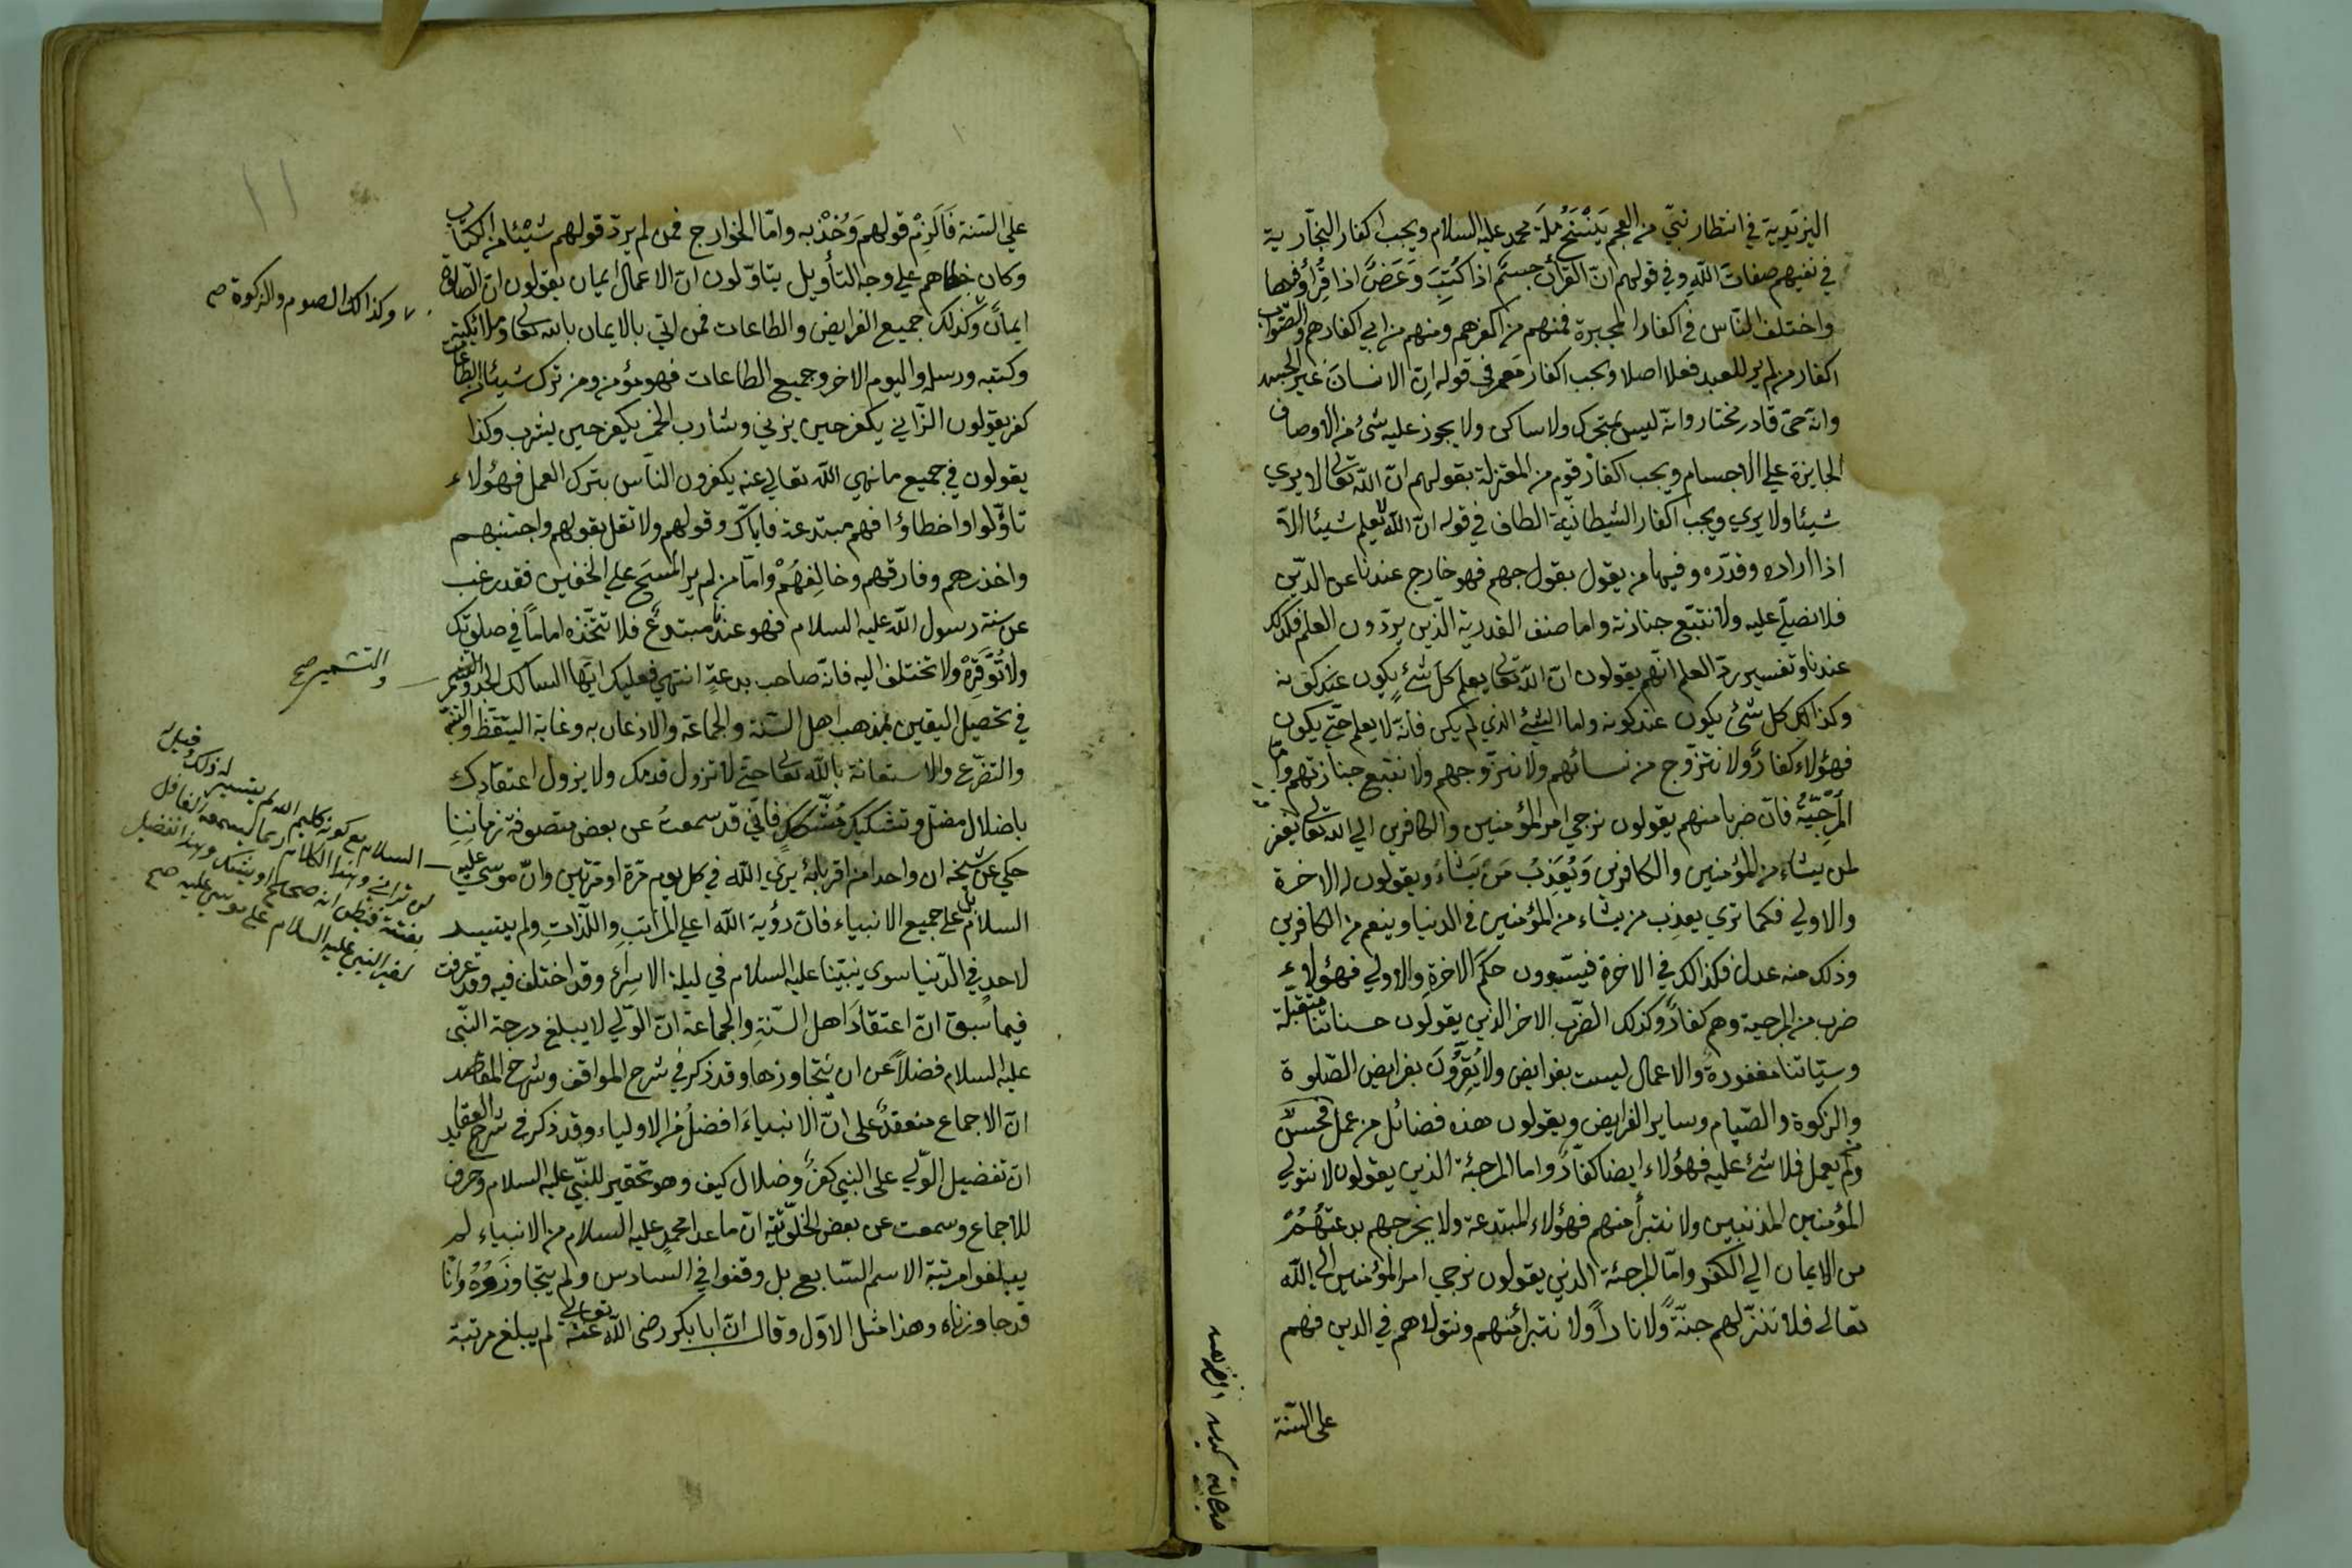 اليزيدية في انتظار نبي من العجم يَنْسَخُ مِلَّةَ محمد عليه السلام ويجب اكفار النجّارية
في نفيهم صفات اللّه وفي قولهم انّ القرأن جسمٌ اذا كُتِبَ وَعَرَضٌ اذا قُرِأ
واختلف النّاس في اكفار المجبرة فمنهم من اكفرهم ومنهم من ابي اكفارهم والصّواب
اكفار من لم ير للعبد فعلا اصلا ويجب اكفار مَعمر في قوله اِنّ الانسانَ غير الجسد
وانّه حيّ قادر مختار وانّه ليس بمتحرك ولا ساكن ولا يجوز عليه شئ من الاوصاف
الجايزة علي الاجسام ويجب اكفار قوم من المعتزلة بقولهم انّ اللّه تعالي لا يري
شيئا ولا يري ويجب اكفار الشيطانية الطاف في قوله انّ اللّه لا يعلم شيئا الاّ
اذا اراده وقدّره وفيها من يقول بقول جهم فهو خارج عندنا عن الدّين
فلا نصلّي عليه ولا نتبّع جنازته واما صنف القدرية الّذين يردّون العلم فكذلك
عندنا وتفسير ردّ العلم انّهم يقولون انّ اللّه تعالي يعلم كلّ شئٍ يكون عند كونه
وكذلك كل شئ يكون عند كونه واما الشئ الذي لم يكن فانّه لا يعلم حتّي يكون
فهؤلاء كفارٌ ولا نتزوّج من نسائهم ولا نتزوجهم ولا نتبع جنازتهم وامّا
المُرْجِيّةُ فانّ ضربا منهم يقولون نرجي امر المؤمنين والكافرين الي اللّه تعالي يغفر
لمن يشاء من المؤمنين والكافرين وَيُعَذِبُ مَن يَشاءُ ويقولون له الاخرة
والاولي فكما تري يعذب من يشاء من المؤمنين في الدنيا وينعم من الكافرين
وذلك منه عدل فكذلك في الاخرة فيسّوون حكمَ الاخرةِ والاولي فهؤلاء
ضرب من المرجية وهم كفارٌ وكذلك الضّرب الاخر الذين يقولون حسناتنا متقبّلة
وسيّاتنا مغفورة والاعمال ليست بفرايض ولا يُقِرُّونَ بفرايض الصّلوة
والزكوة والصّيام وساير الفرايض ويقولون هذه فضائل من عمل فحسن
ومن لم يعمل فلا شئ عليه فهؤلاء ايضا كفّارٌ واما المرجئة الذين يقولون لا نتولي
المؤمنين المذنبين ولا نتبرأ منهم فهؤلاء المبتدعة ولا يخرجهم بدعتُهُمْ
من الايمان الي الكفر وامّا المرجئة الذين يقولون نرجي امر المؤمنين الي اللّه
تعالى فلا ننزّلهم جنّةً ولا نارًا ولا نتبرأ منهم ونتولاهم في الدين فهم
على السّنة
علي السّنة فَاَلْزِمْ قولهم وَخُذْ به وامّا الخوارج فمن لم يردّ قولهم شيْئا من الكتاب
وكان خطاهم علي وجه التأويل يتاوّلون انّ الاعمال ايمان يقولون انّ الصّلوة
ايمانٌ وكذلك جميع الفرايض والطاعات فمن اتي بالايمان باللّه تعالي وملائكته
وكتبه ورسله واليوم الاخر وجميع الطاعات فهو مؤمن ومن ترك شيئا من الطاعات
كفر يقولون الزّاني يكفر حين يزني وشارب الخمر يكفر حين يشرب وكذا
يقولون في جميع ما نهي اللّه تعالي عنه يكفرون النّاس بترك العمل فهؤلاء
تاوّلوا واخطاؤا فهم مبتدعة فايّاك وقولهم ولا تقل بقولهم واجتنبهم
واحذرهم وفارقهم وخالِفهُمْ وامّا من لم ير المسح علي الخفين فقد رغب
عن سنة رسول اللّه عليه السلام فهو عندنا مبتدعٌ فلا تتّخذه اماماً في صلوتك
ولا تُوَقِّرْهُ ولا تختلف اليه فانّه صاحب بدعةٍ انتهي فعليك ايّها السالك الجد والتشمر
في تحصيل اليقين بمذهب اهل السّنّة والجماعة والاذعان به وغاية التيقظ والتنبّه
والتضرّع والاستعانة باللّه تعالي حتي لا تزول قدمك ولا يزول اعتقادك
باضلال مضلّ وتشكيك مُشَكِّكٍ فانّي قد سمعتُ عن بعض متصوفة زماننِا
حكي عن شيخه ان واحدا من اقربائه يري اللّه في كل يوم مرّة او مرّتين وانّ موسي عليه
السلام بل علي جميع الانبياء فانّ رؤية اللّه اعلي المراتبِ واللّذاتِ ولم يتيسر
لاحدٍ في الدّنيا سوي نبيّنا عليه السلام في ليلة الاسراء وقد اختلف فيه وقد عرفت
فيما سبق انّ اعتقادَ اهل السّنّةِ والجماعة انّ الوّلي لا يبلغ درجة النّبي
عليه السلام فضلاً عن ان يتجاوزها وقد ذكر في شرح المواقف وشرح المقاصد
انّ الاجماع منعقدٌ على انّ الانبياءَ افضلُ من الاولياء وقد ذكر في شرح العقايد
انّ تفضيل الوّلي على النبي كفرٌ وضلال كيف وهو تحقير للنّبي عليه السلام وخرق
للاجماع وسمعت عن بعض الخلوتية انّ ما عدا محمد عليه السلام من الانبياء لم
يبلغوا مرتبة الاسم السّابع بل وقفوا في السادس ولم يتجاوزوهُ وانا
قد جاوزناه وهذا مثل الاوّل وقال انّ ابا بكر رضى اللّه تعالى عنه لم يبلغ مرتبة
وكذلك الصوم والزكوة صح
والتشمير صح
السلام مع كونه كليم اللّه لم يتيسر له ذلك وقيل له
لن تراني وهذا الكلام ربما يسمعه الغافل
بغتة فيظن انه صحيح او يشك وهذا تفضيل
لغير النبي عليه السلام على موسى عليه صح